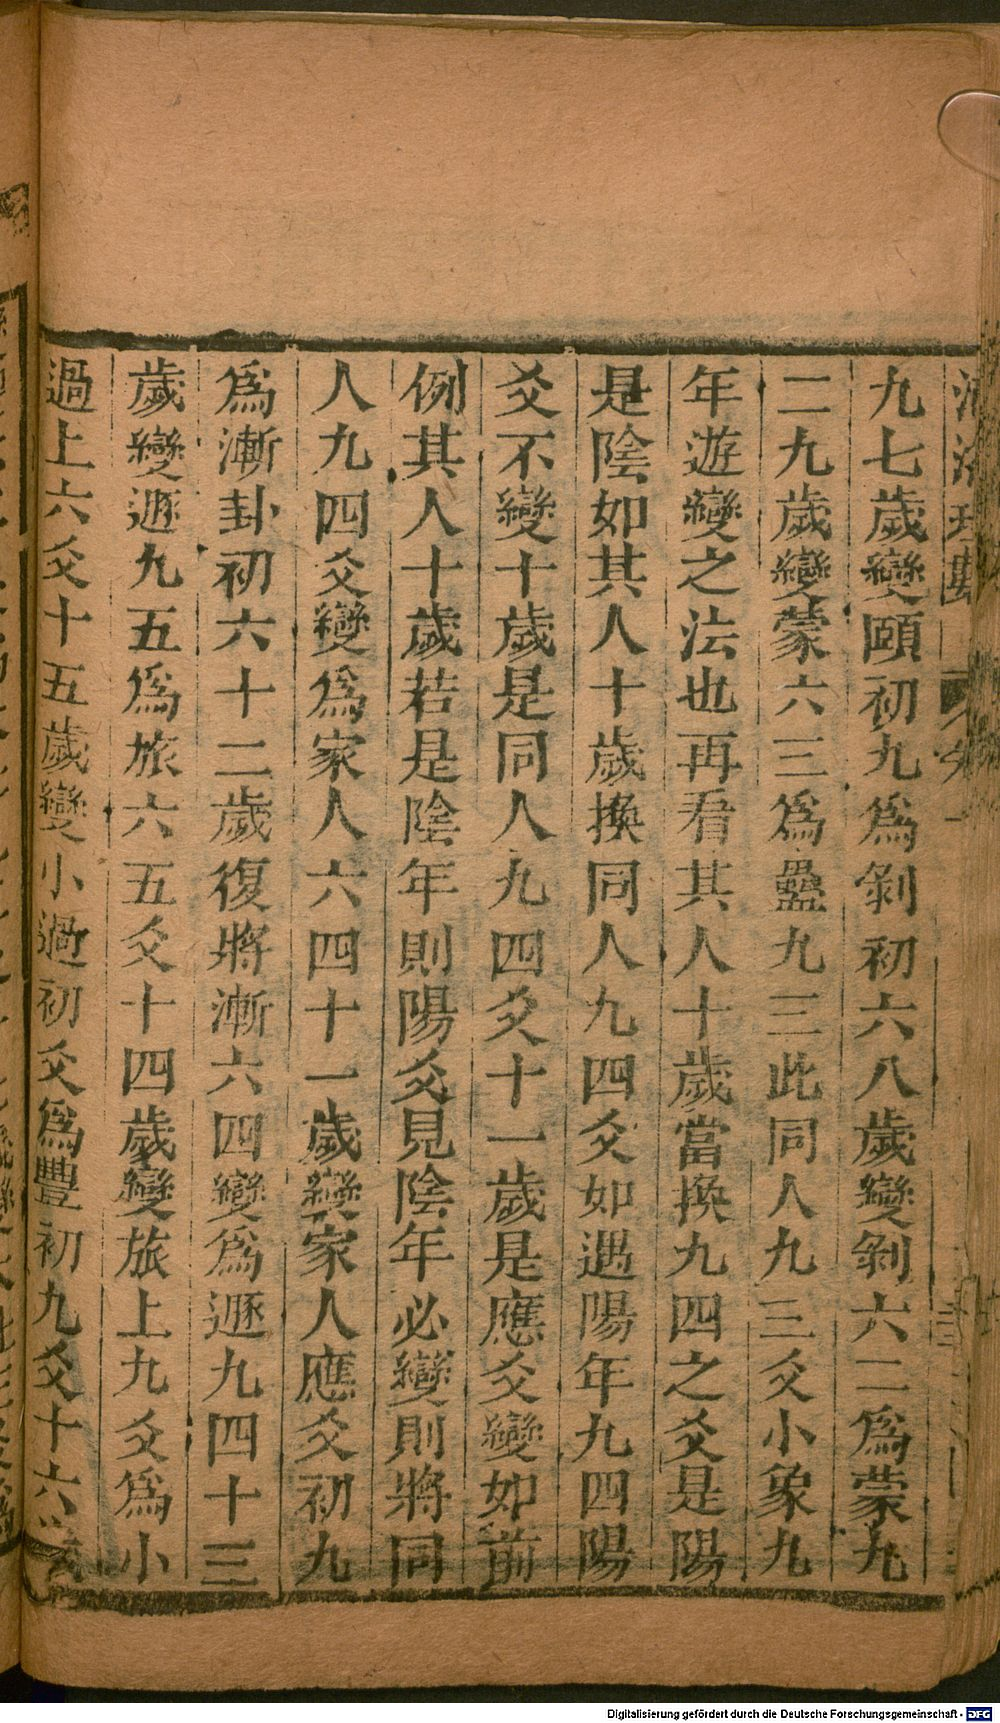 河洛理數
九七歲變頤初九爲剝初六八歲變剝六二爲蒙九
二九歲變蒙六三爲蠱九三此同人九三爻小象九
年遊變之法也再看其人十歲當換九四之爻是陽
是陰如其人十歲換同人九四爻如遇陽年九四陽
爻不變十歲是同人九四爻十一歲是應爻變如前
例其人十歲若是陰年則陽爻見陰年必變則將同
人九四爻變爲家人六四十一歲變家人應爻初九
爲漸卦初六十二歲復將漸六四變爲遯九四十三
歲變遯九五爲旅六五爻十四歲變旅上九爻爲小
過上六爻十五歲變小過初爻爲豐初九爻十六歲
Digitalisierung gefördert durch die Deutsche Forschungsgemeinschaft - DFG